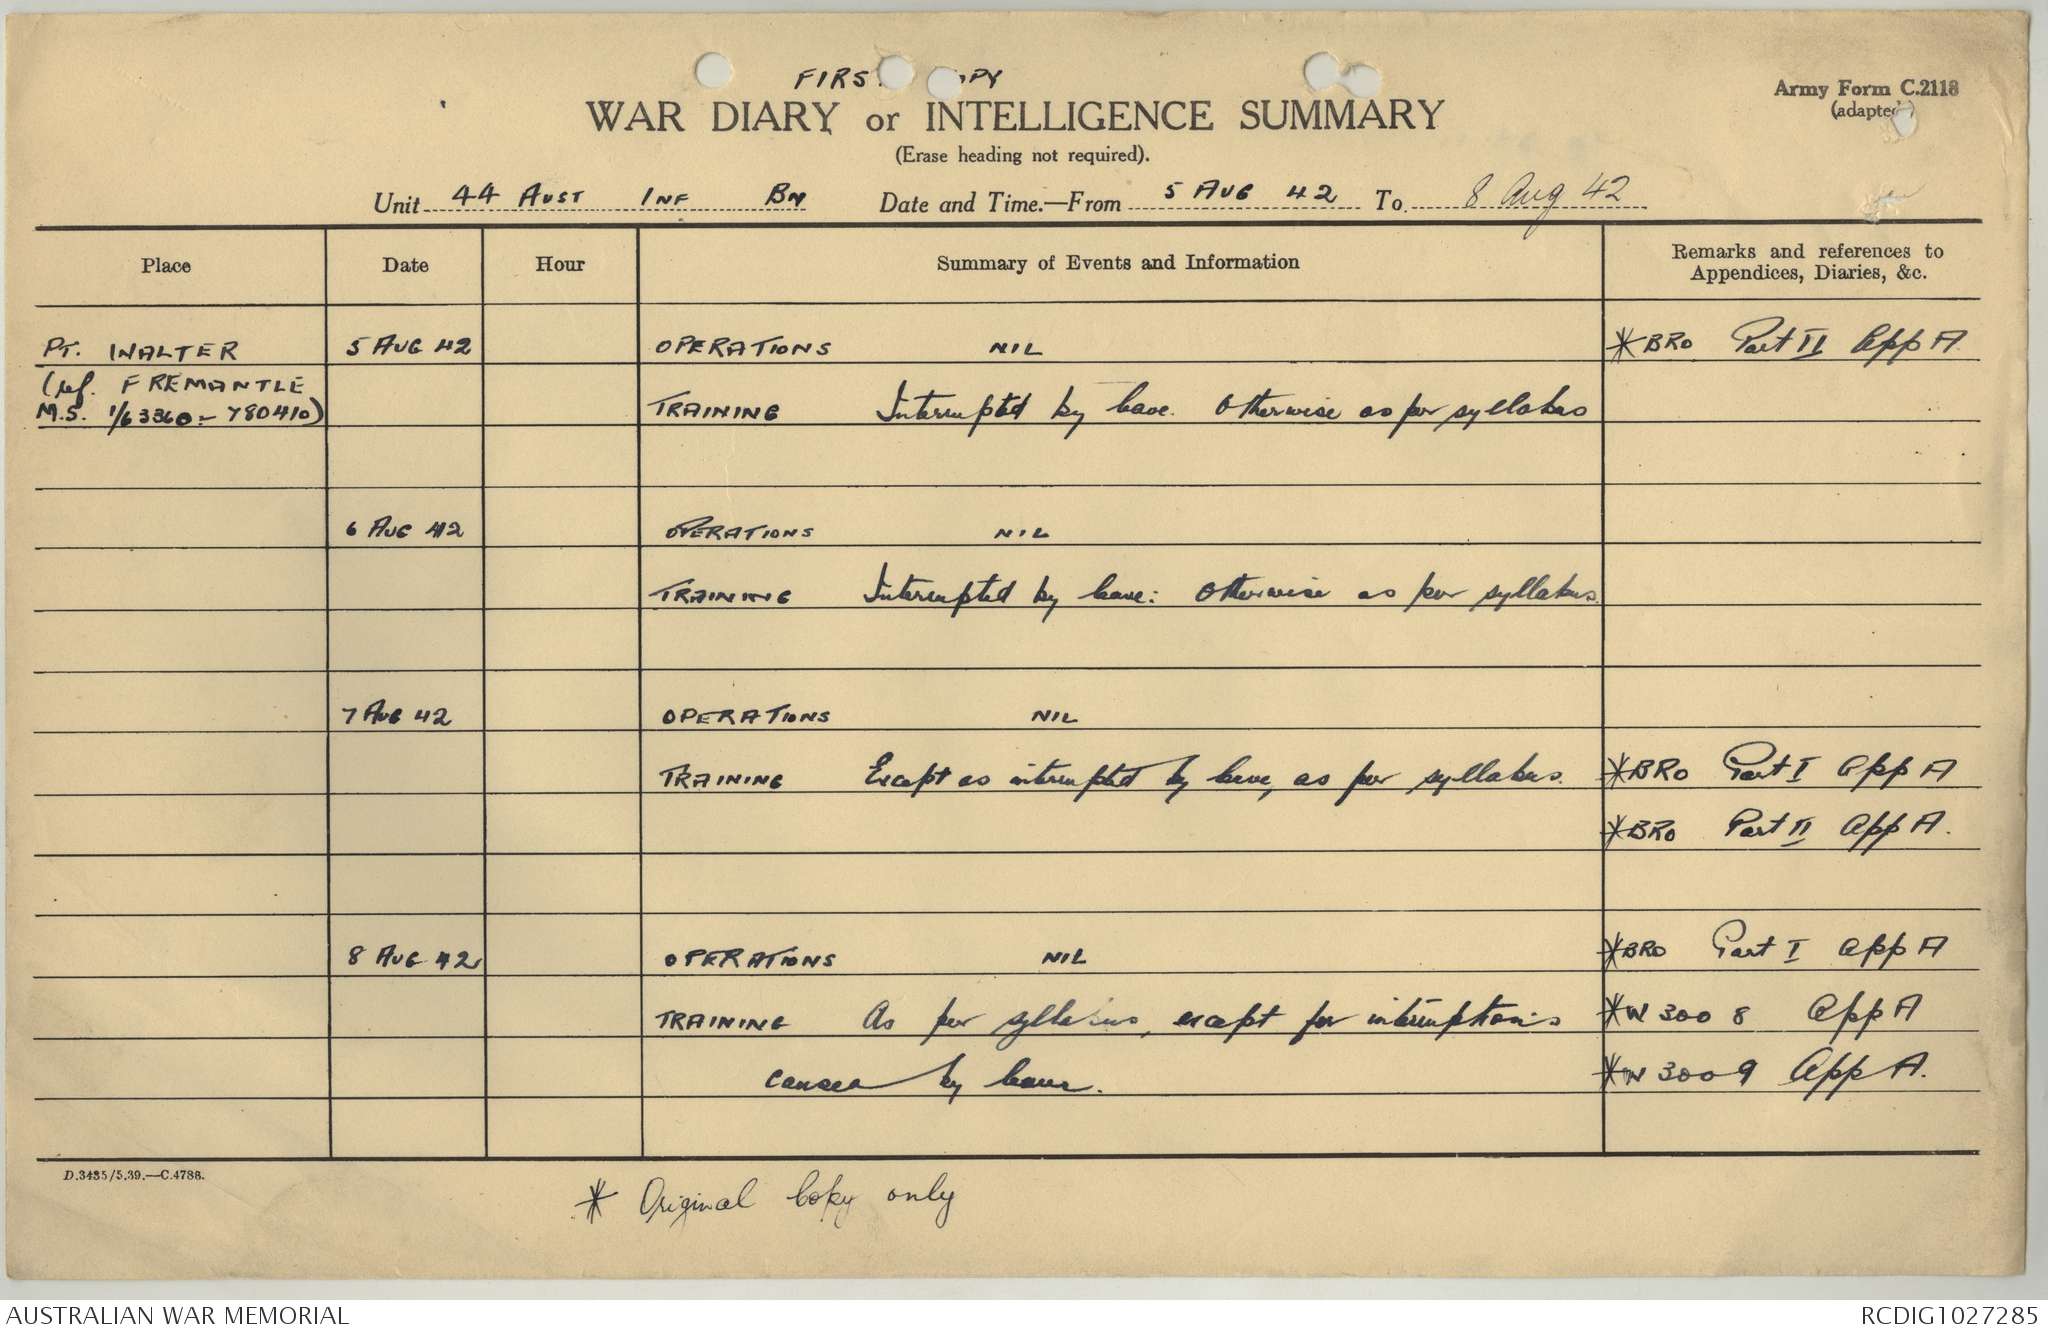 FIRST COPY
Army Form C.2118
(adapted)
WAR DIARY or INTELLIGENCE SUMMARY
(Erase heading not required).
Unit 44 AUST INF BN Date and Time.—From 5 AUG 42 To 8 Aug 42
Place Date Hour Summary of Events and Information Remarks and references to Appendices, Diaries, &c.
PT. WALTER 5 AUG 42 OPERATIONS NIL *BRO Part II App A
(ref. FREMANTLE
M.S. 1/63360 - 780410) TRAINING Interrupted by leave. Otherwise as per syllabus
6 AUG 42 OPERATIONS NIL
TRAINING Interrupted by leave: Otherwise as per syllabus.
7 AUG 42 OPERATIONS NIL
TRAINING Except as interrupted by leave, as per syllabus. *BRO Part I App A
*BRO Part II App A.
8 AUG 42 OPERATIONS NIL *BRO Part I App A
TRAINING As per syllabus, except for interruptions *W 3008 App A
caused by leave. *W 3009 App A.
D.3435/5.39.—C.4788.
* Original Copy only
AUSTRALIAN WAR MEMORIAL RCDIG1027285